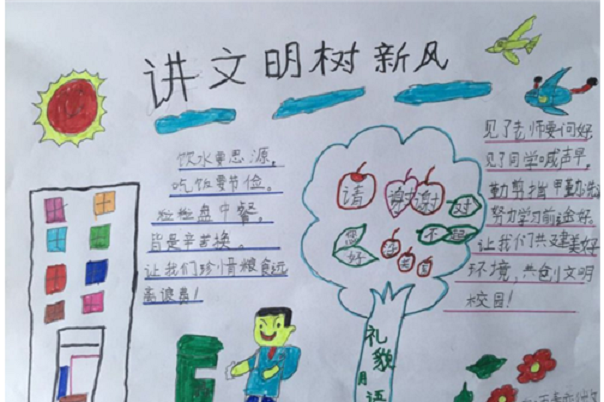 讲文明树新风
饮水要思源。
吃饭要节俭。
粒粒盘中餐,
皆是辛苦换。
让我们珍惜粮食远
离浪费!
请
谢谢
对
不起
您
好
礼貌
用语
见了老师要问好,
见了同学喊声早,
勤剪指甲勤洗
努力学习前途好。
让我们共建美好
环境,共创文明
校园!